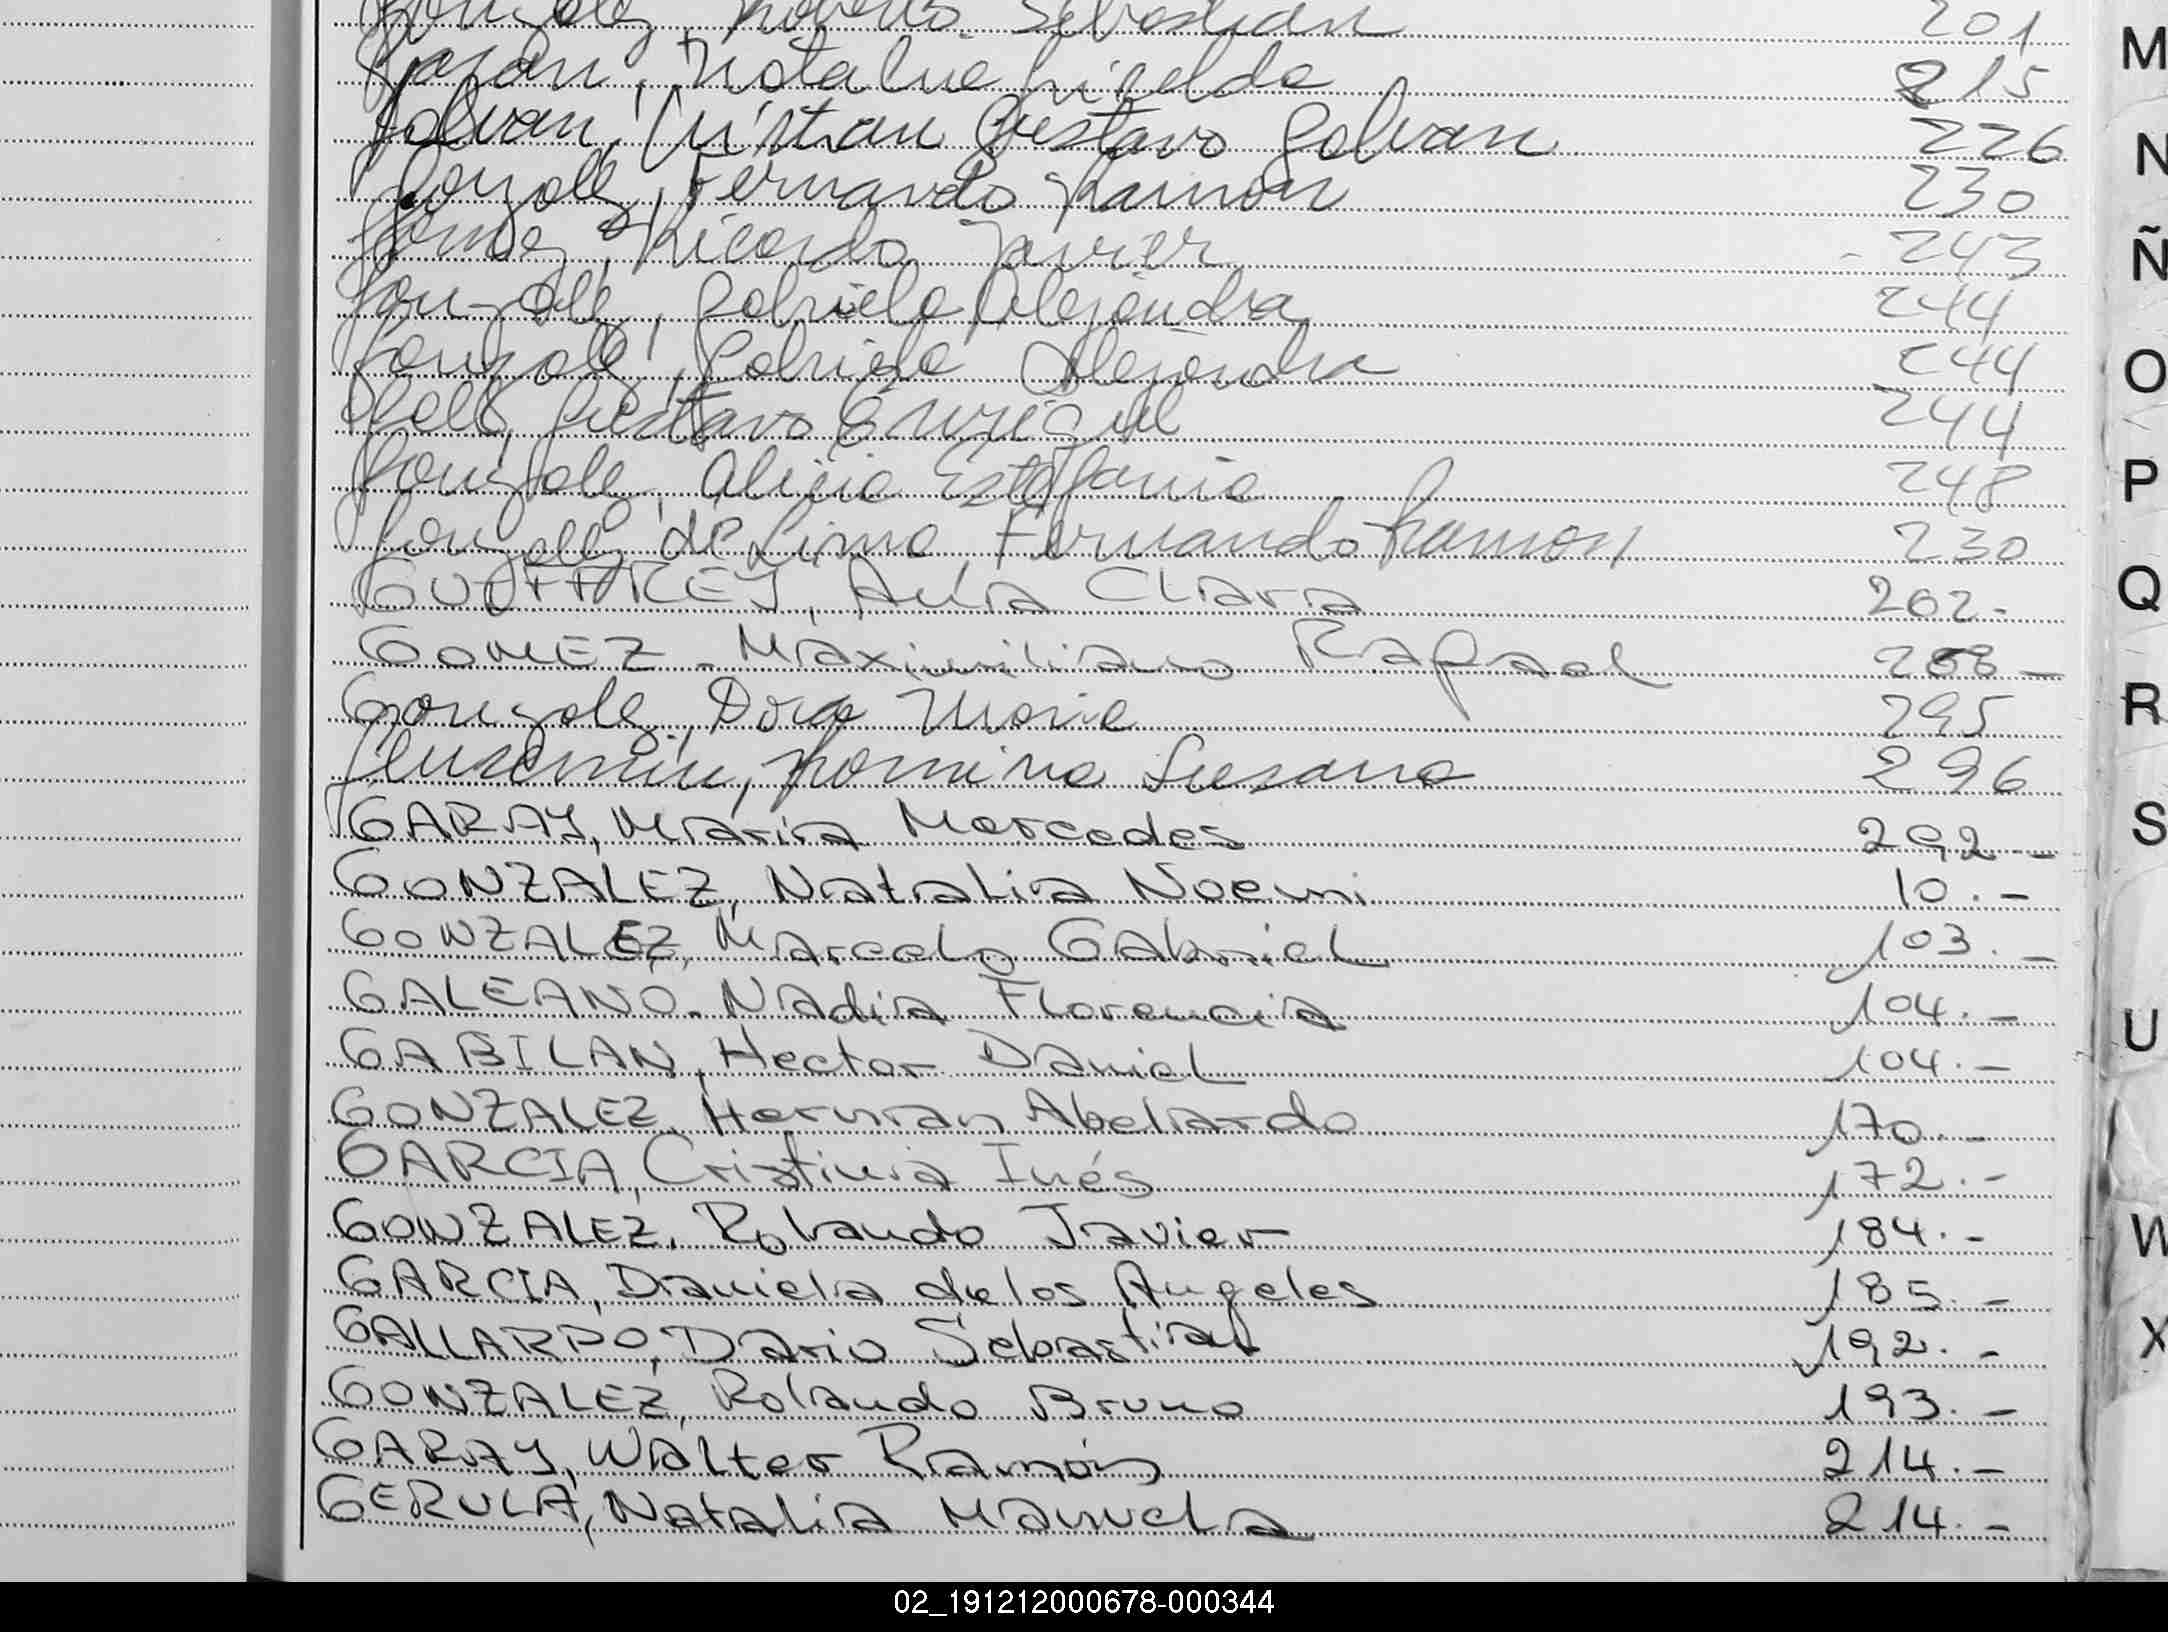 Gonzalez, Roberto Sebastian 201
Natalia Griselda 215
Galvan, Cristian Gustavo Galvan 226
Gonzalez, Fernando Ramon 230
Gomez, Ricardo Javier 243
Gonzalez, Gabriela Alejandra 244
Gonzalez, Gabriela Alejandra 244
Gustavo Enrique 244
Gonzalez, Alicia Estefania 248
Gonzalez de Lima, Fernando Ramon 230
Ana Clara 262-
GOMEZ - Maximiliano Rafael 268-
Gonzalez, Dora Maria 295
Romina Susana 296
GARAY, Maria Mercedes 292.-
GONZALEZ, Natalia Noemi 10.-
GONZALEZ, Marcelo Gabriel 103.-
GALEANO. Nadia Florencia 104.-
GABILAN, Hector Daniel 104.-
GONZALEZ, Hernan Abelardo 170.-
GARCIA, Cristina Inés 172.-
GONZALEZ, Rolando Javier 184.-
GARCIA, Daniela de los Angeles 185.-
GALLARDO, Dario Sebastian 192.-
GONZALEZ, Rolando Bruno 193.-
GARAY, Walter Ramón 214.-
GERULA, Natalia Manuela 214.-
M
N
Ñ
O
P
Q
R
S
U
W
X
02_191212000678-000344